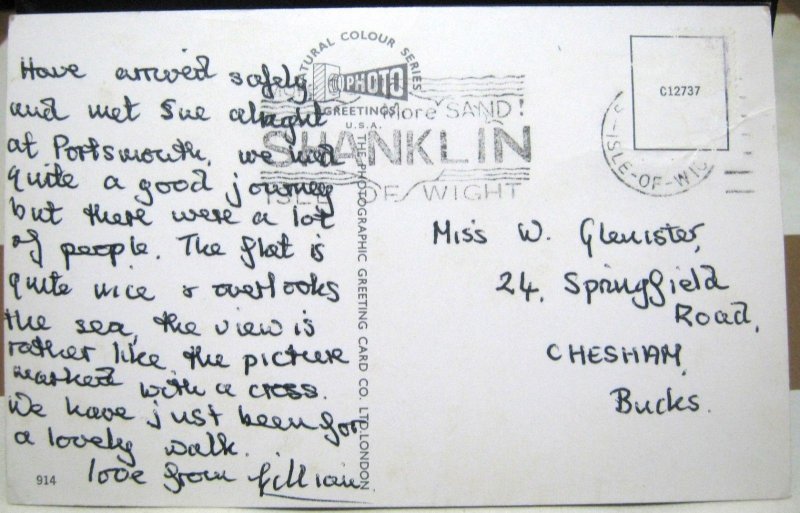 Have arrived safely
and met Sue alright
at Portsmouth, we had
quite a good journey
but there were a lot
of people. The flat is
quite nice & overlooks
the sea, the view is
rather like the picture
marked with a cross.
We have just been for
a lovely walk.
love from Gillian
914
NATURAL COLOUR SERIES
PHOTO
GREETINGS
U.S.A.
THE PHOTOGRAPHIC GREETING CARD CO. LTD. LONDON
more SAND!
SHANKLIN
ISLE OF WIGHT
C12737
ISLE-OF-WIG
Miss W. Glenister,
24, Springfield
Road,
CHESHAM,
Bucks.